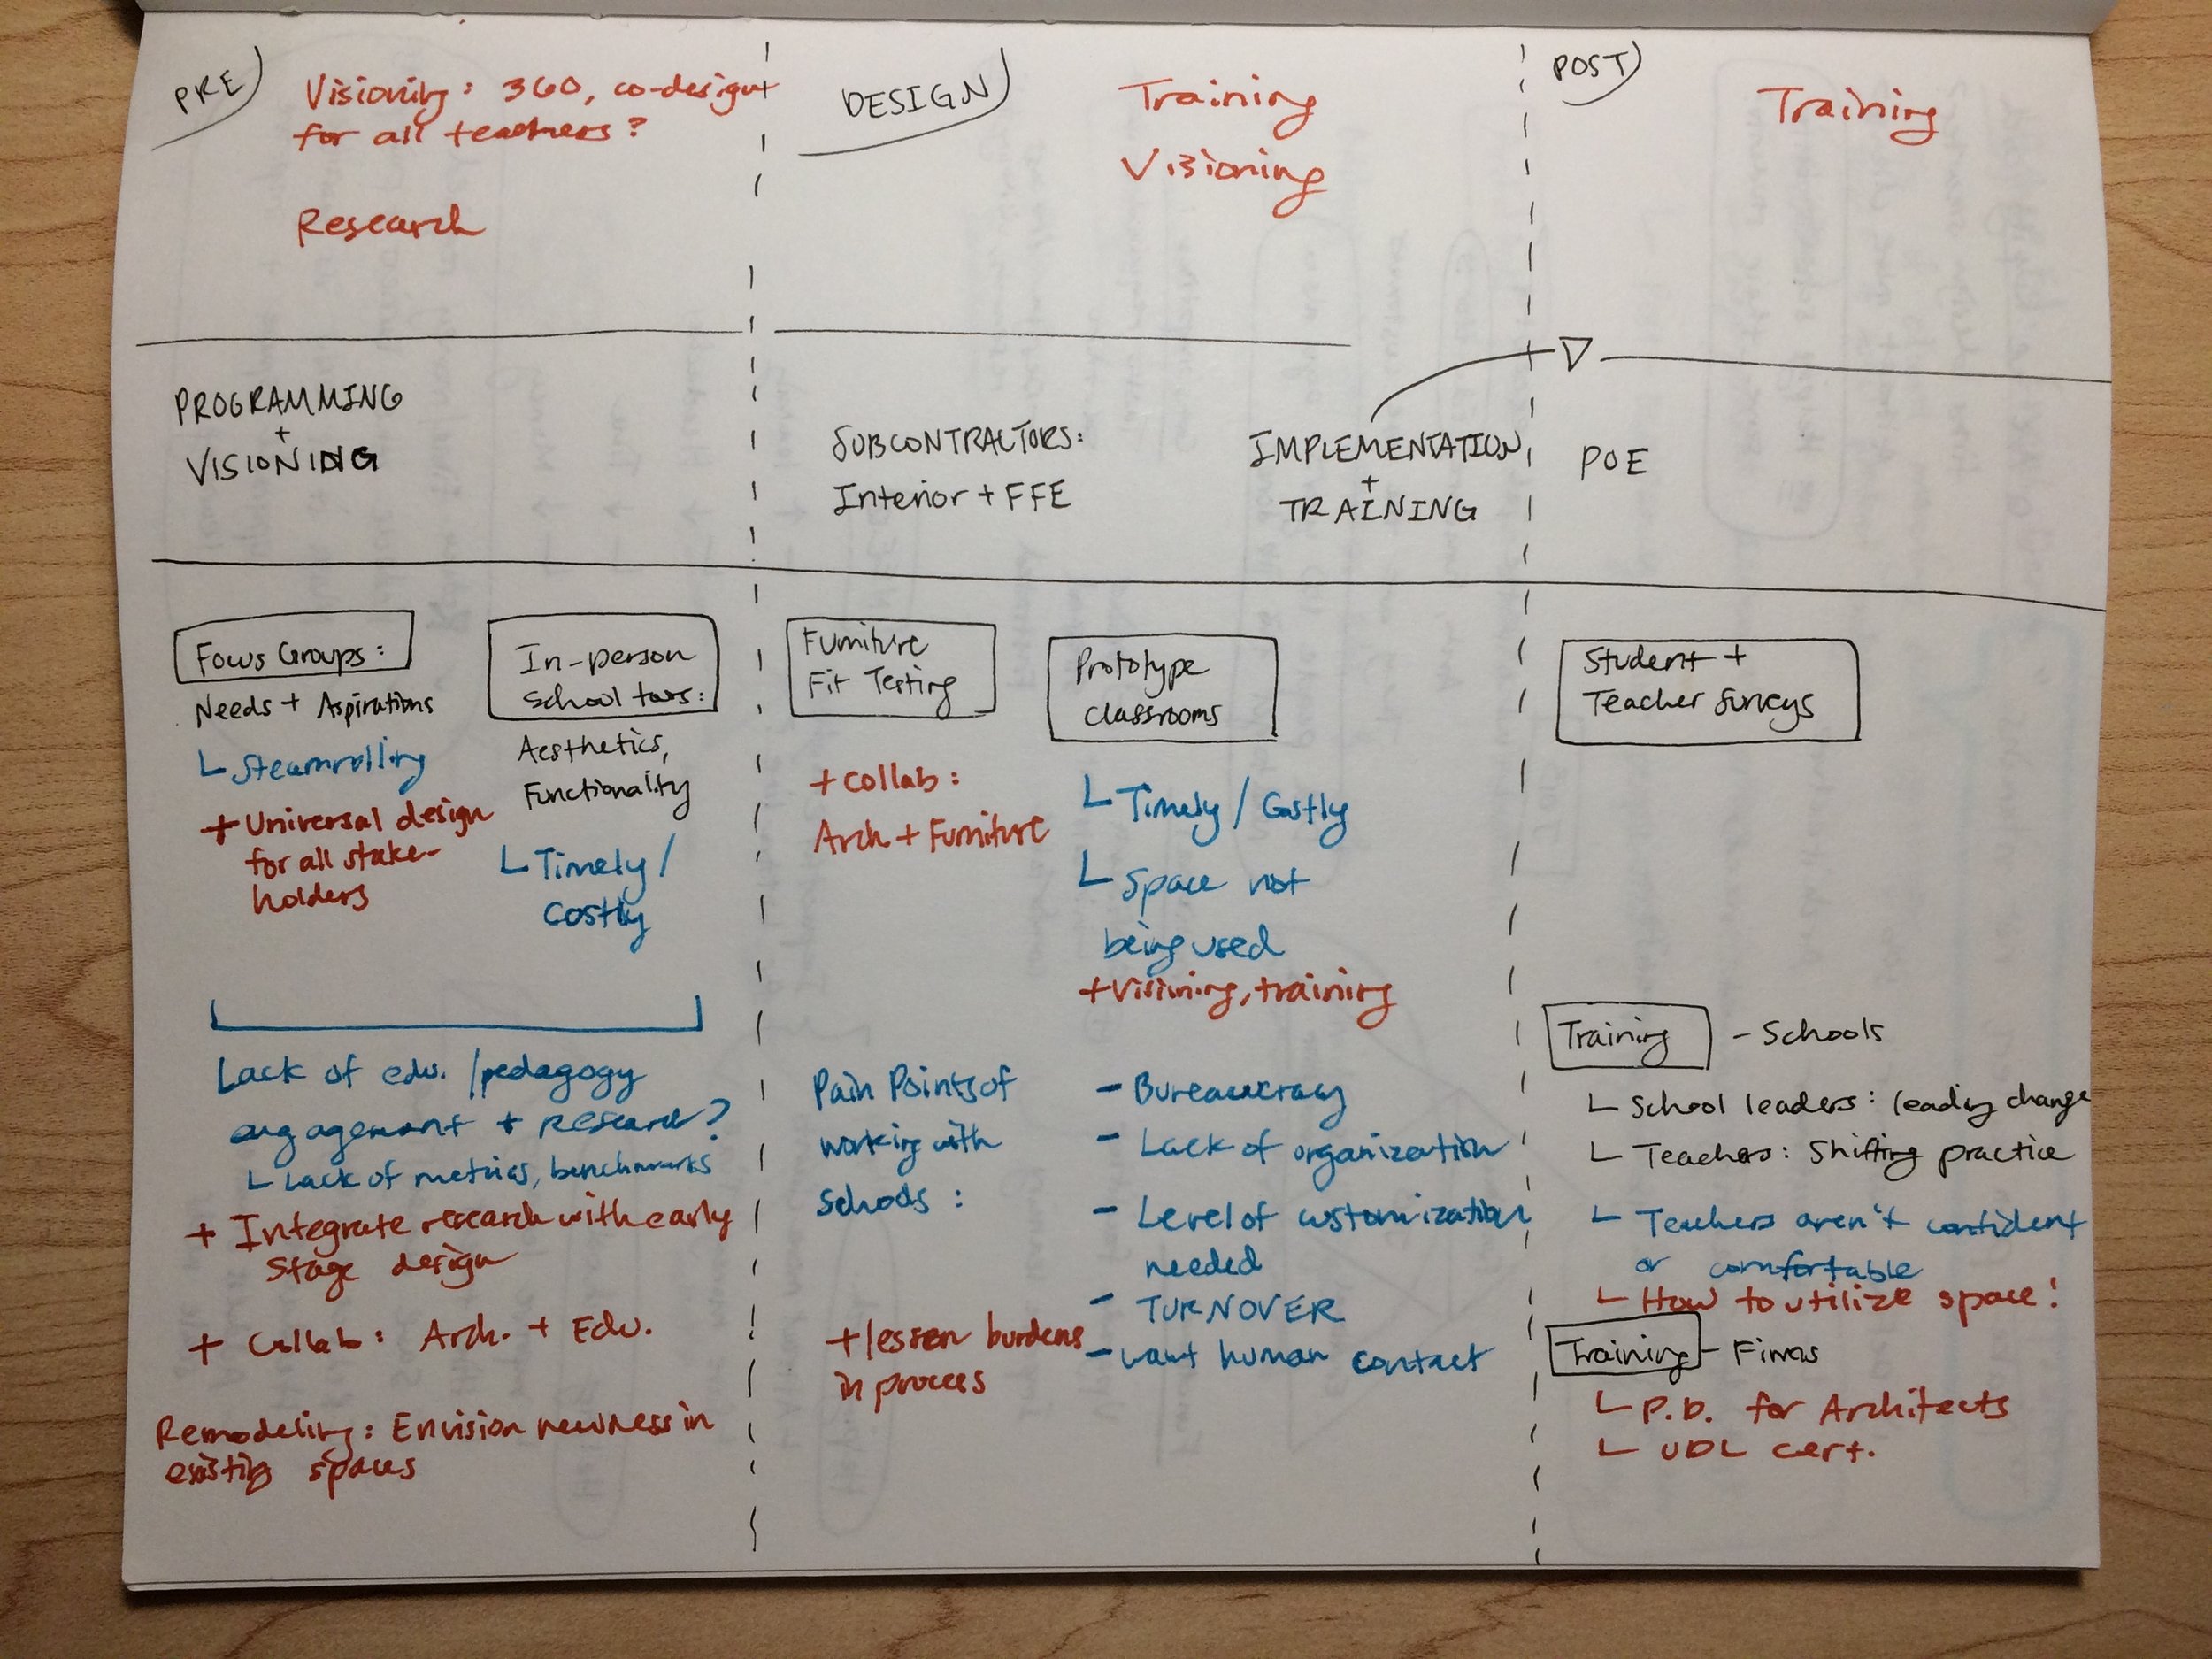 PRE
Visioning: 360, co-design
for all teachers?
Research
DESIGN
Training
Visioning
POST
Training
PROGRAMMING
+
VISIONING
SUBCONTRACTORS:
Interior + FFE
IMPLEMENTATION
+
TRAINING
POE
Focus Groups:
Needs + Aspirations
Steamrolling
+ Universal design
for all stake-
holders
In-person
School tours:
Aesthetics,
Functionality
Timely /
Costly
Lack of edu. / pedagogy
engagement + research?
Lack of metrics, benchmarks
+ Integrate research with early
stage design
+ Collab: Arch. + Edu.
Remodeling: Envision newness in
existing spaces
Furniture
Fit Testing
+ collab:
Arch + Furniture
Prototype
Classrooms
Timely / Costly
Space not
being used
+ visioning, training
Pain Points of
working with
Schools:
- Bureaucracy
- Lack of organization
- Level of customization
needed
- TURNOVER
- want human contact
+ lessen burdens
in process
Student +
Teacher Surveys
Training - Schools
School leaders: leading change
Teachers: Shifting practice
Teachers aren't confident
or comfortable
How to utilize space!
Training - Firms
P.D. for Architects
UDL cert.